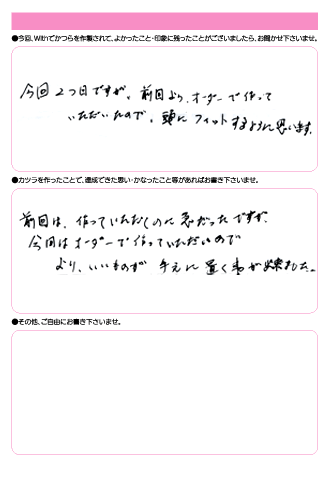 ●今回、Withでかつらを作製されて、よかったこと・印象に残ったことがございましたら、お聞かせ下さいませ。
今回 2つ目ですが、前回より、オーダーで作って
いただいたので、頭に フィットするように思います。
●カツラを作ったことで、達成できた思い・かなったこと等があればお書き下さいませ。
前回は、作っていただくのに 急だったですが、
今回はオーダーで作っていただいので
より、いいものが 手元に 置く事が出来ました。
●その他、ご自由にお書き下さいませ。